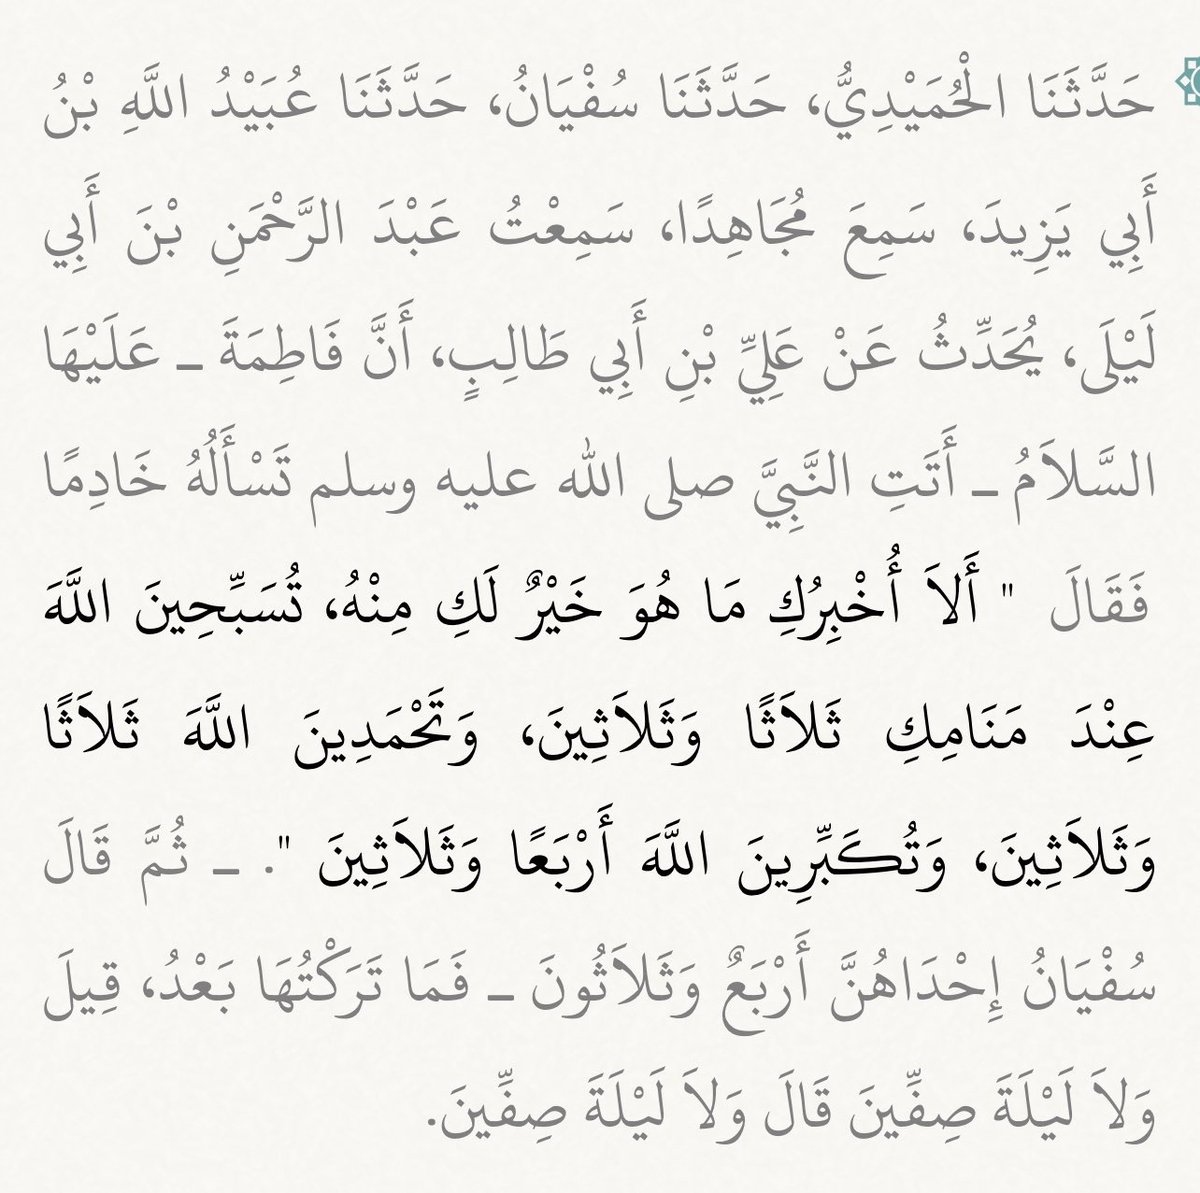 حَدَّثَنَا الْحُمَيْدِيُّ، حَدَّثَنَا سُفْيَانُ، حَدَّثَنَا عُبَيْدُ اللَّهِ بْنُ
أَبِي يَزِيدَ، سَمِعَ مُجَاهِدًا، سَمِعْتُ عَبْدَ الرَّحْمَنِ بْنَ أَبِي
لَيْلَى، يُحَدِّثُ عَنْ عَلِيِّ بْنِ أَبِي طَالِبٍ، أَنَّ فَاطِمَةَ ـ عَلَيْهَا
السَّلاَمُ ـ أَتَتِ النَّبِيَّ صلى الله عليه وسلم تَسْأَلُهُ خَادِمًا
فَقَالَ " أَلاَ أُخْبِرُكِ مَا هُوَ خَيْرٌ لَكِ مِنْهُ، تُسَبِّحِينَ اللَّهَ
عِنْدَ مَنَامِكِ ثَلاَثًا وَثَلاَثِينَ، وَتَحْمَدِينَ اللَّهَ ثَلاَثًا
وَثَلاَثِينَ، وَتُكَبِّرِينَ اللَّهَ أَرْبَعًا وَثَلاَثِينَ ". ـ ثُمَّ قَالَ
سُفْيَانُ إِحْدَاهُنَّ أَرْبَعٌ وَثَلاَثُونَ ـ فَمَا تَرَكْتُهَا بَعْدُ، قِيلَ
وَلاَ لَيْلَةَ صِفِّينَ قَالَ وَلاَ لَيْلَةَ صِفِّينَ.